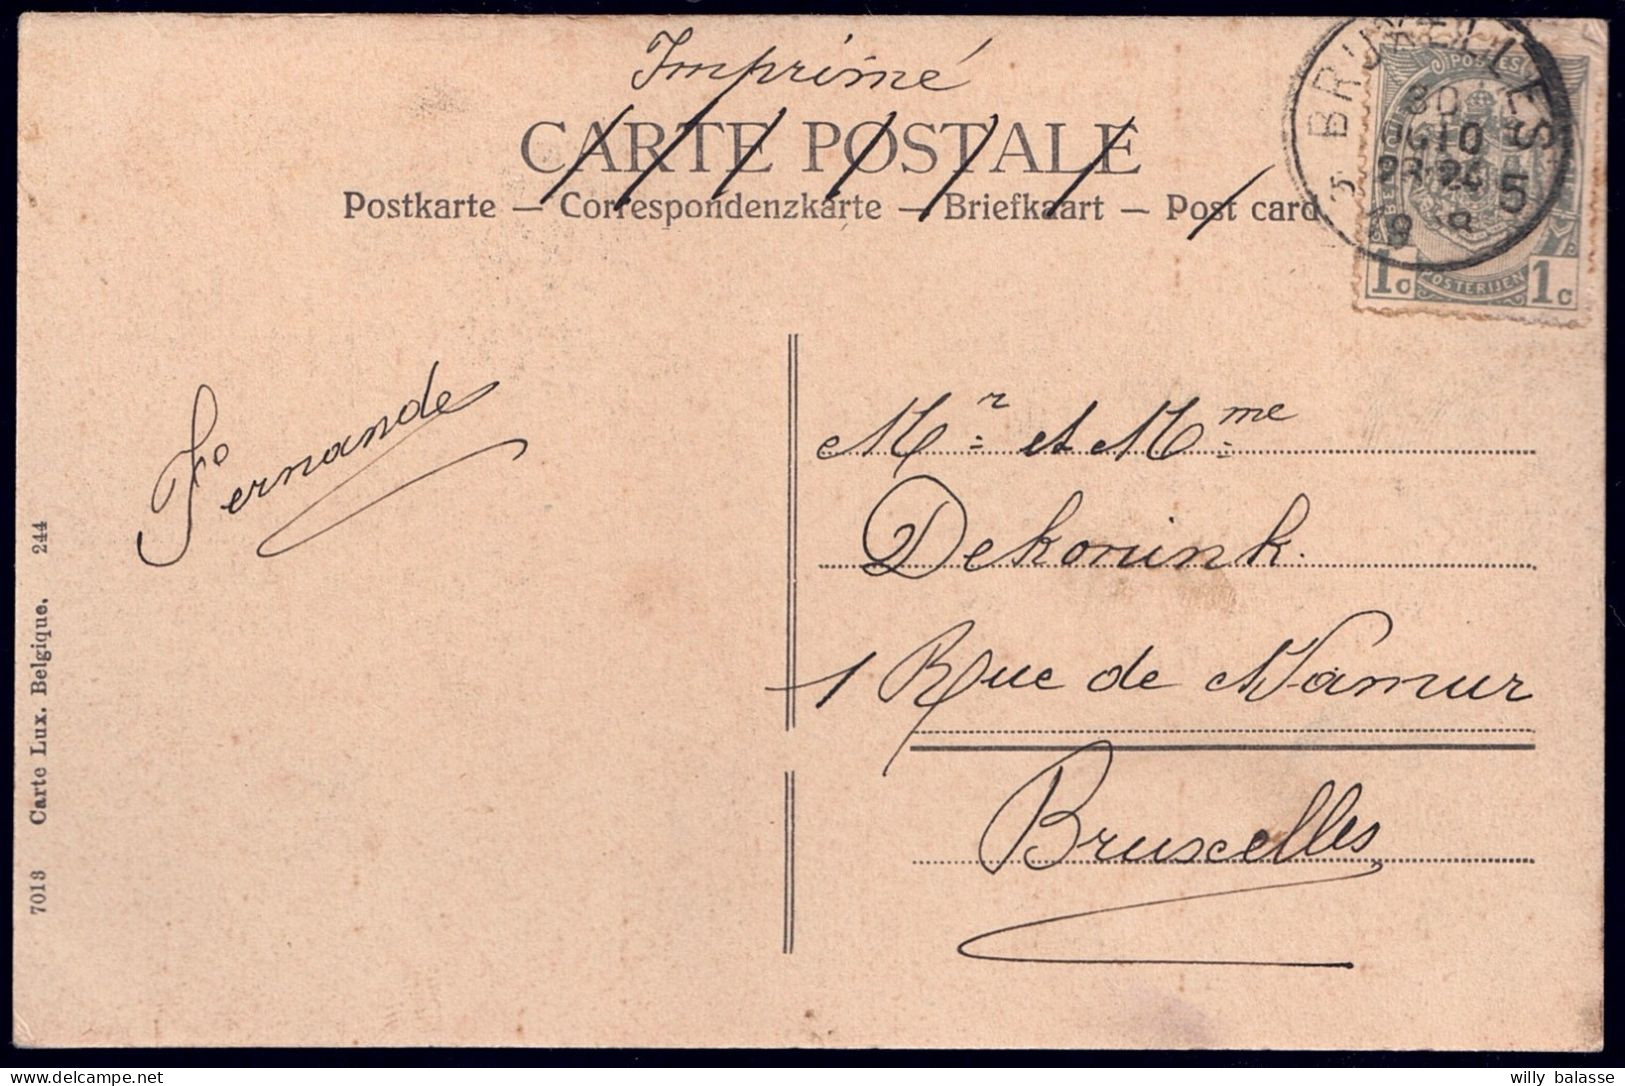 Imprimé
CARTE POSTALE
Postkarte — Correspondenzkarte — Briefkaart — Post card
BRUXELLES 5
POSTES
POSTERIJEN
1c 1c
Fernande
Mr et Mme
Dekonink.
1 Rue de Namur
Bruxelles
7013 Carte Lux. Belgique. 244
willy balasse